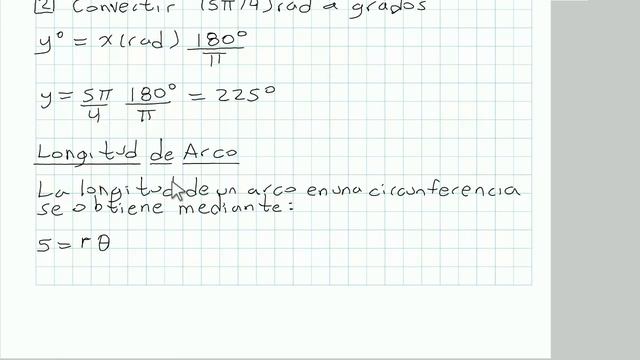 [2] Convertir (5π/4) rad a grados
y° = x(rad) 180°/π
y = 5π/4 180°/π = 225°
Longitud de Arco
La longitud de un arco en una circunferencia
se obtiene mediante:
s = r θ